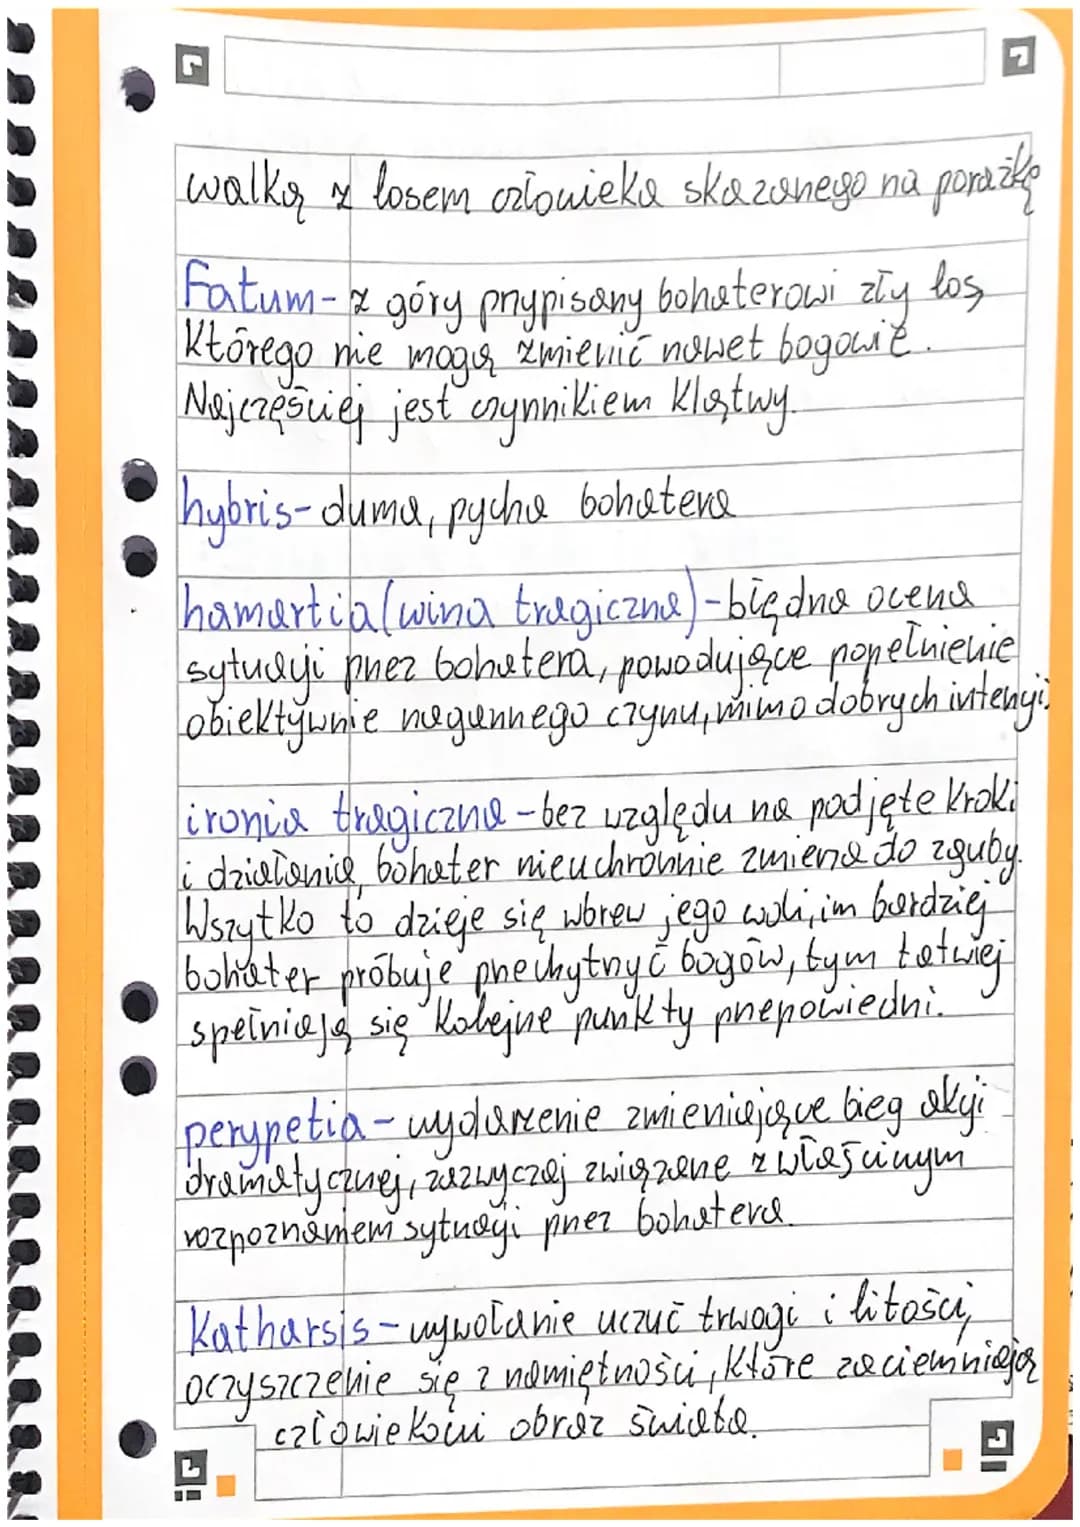 walką z losem człowieka skazanego na porażkę
Fatum - z góry przypisany bohaterowi zły los,
którego nie mogą zmienić nawet bogowie.
Najczęściej jest czynnikiem klątwy.
hybris - duma, pycha bohatera
hamartia (wina tragiczna) - błędna ocena
sytuacji przez bohatera, powodujące popełnienie
obiektywnie nagannego czynu, mimo dobrych intencji.
ironia tragiczna - bez względu na podjęte kroki
i działania, bohater nieuchronnie zmierza do zguby.
Wszytko to dzieje się wbrew jego woli, im bardziej
bohater próbuje przechytrzyć bogów, tym łatwiej
spełniają się kolejne punkty przepowiedni.
perypetia - wydarzenie zmieniające bieg akcji
dramatycznej, zazwyczaj związane z właściwym
rozpoznaniem sytuacji przez bohatera.
Katharsis - wywołanie uczuć trwogi i litości,
oczyszczenie się z namiętności, które zaciemniają
człowiekowi obraz świata.